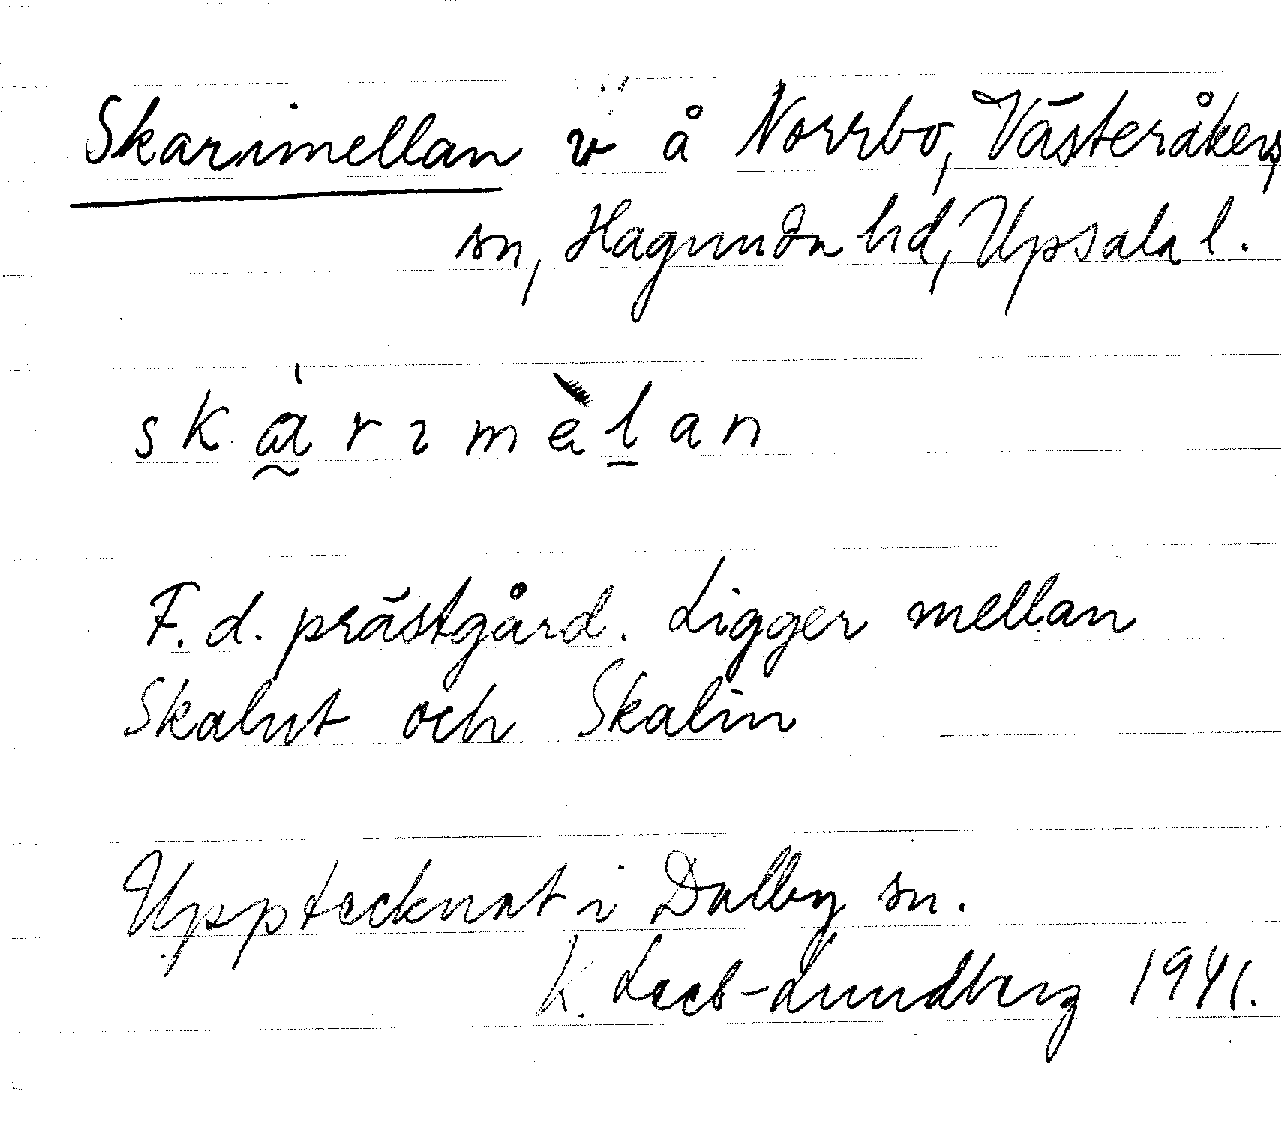 Skarimellan v å Norrbo, Västeråkers
sn, Hagunda hd, Upsala l.
skɑ̀rɪmèl̠an
F.d. prästgård. Ligger mellan
Skalut och Skalin
Upptecknat i Dalby sn.
K. Leeb-Lundberg 1941.